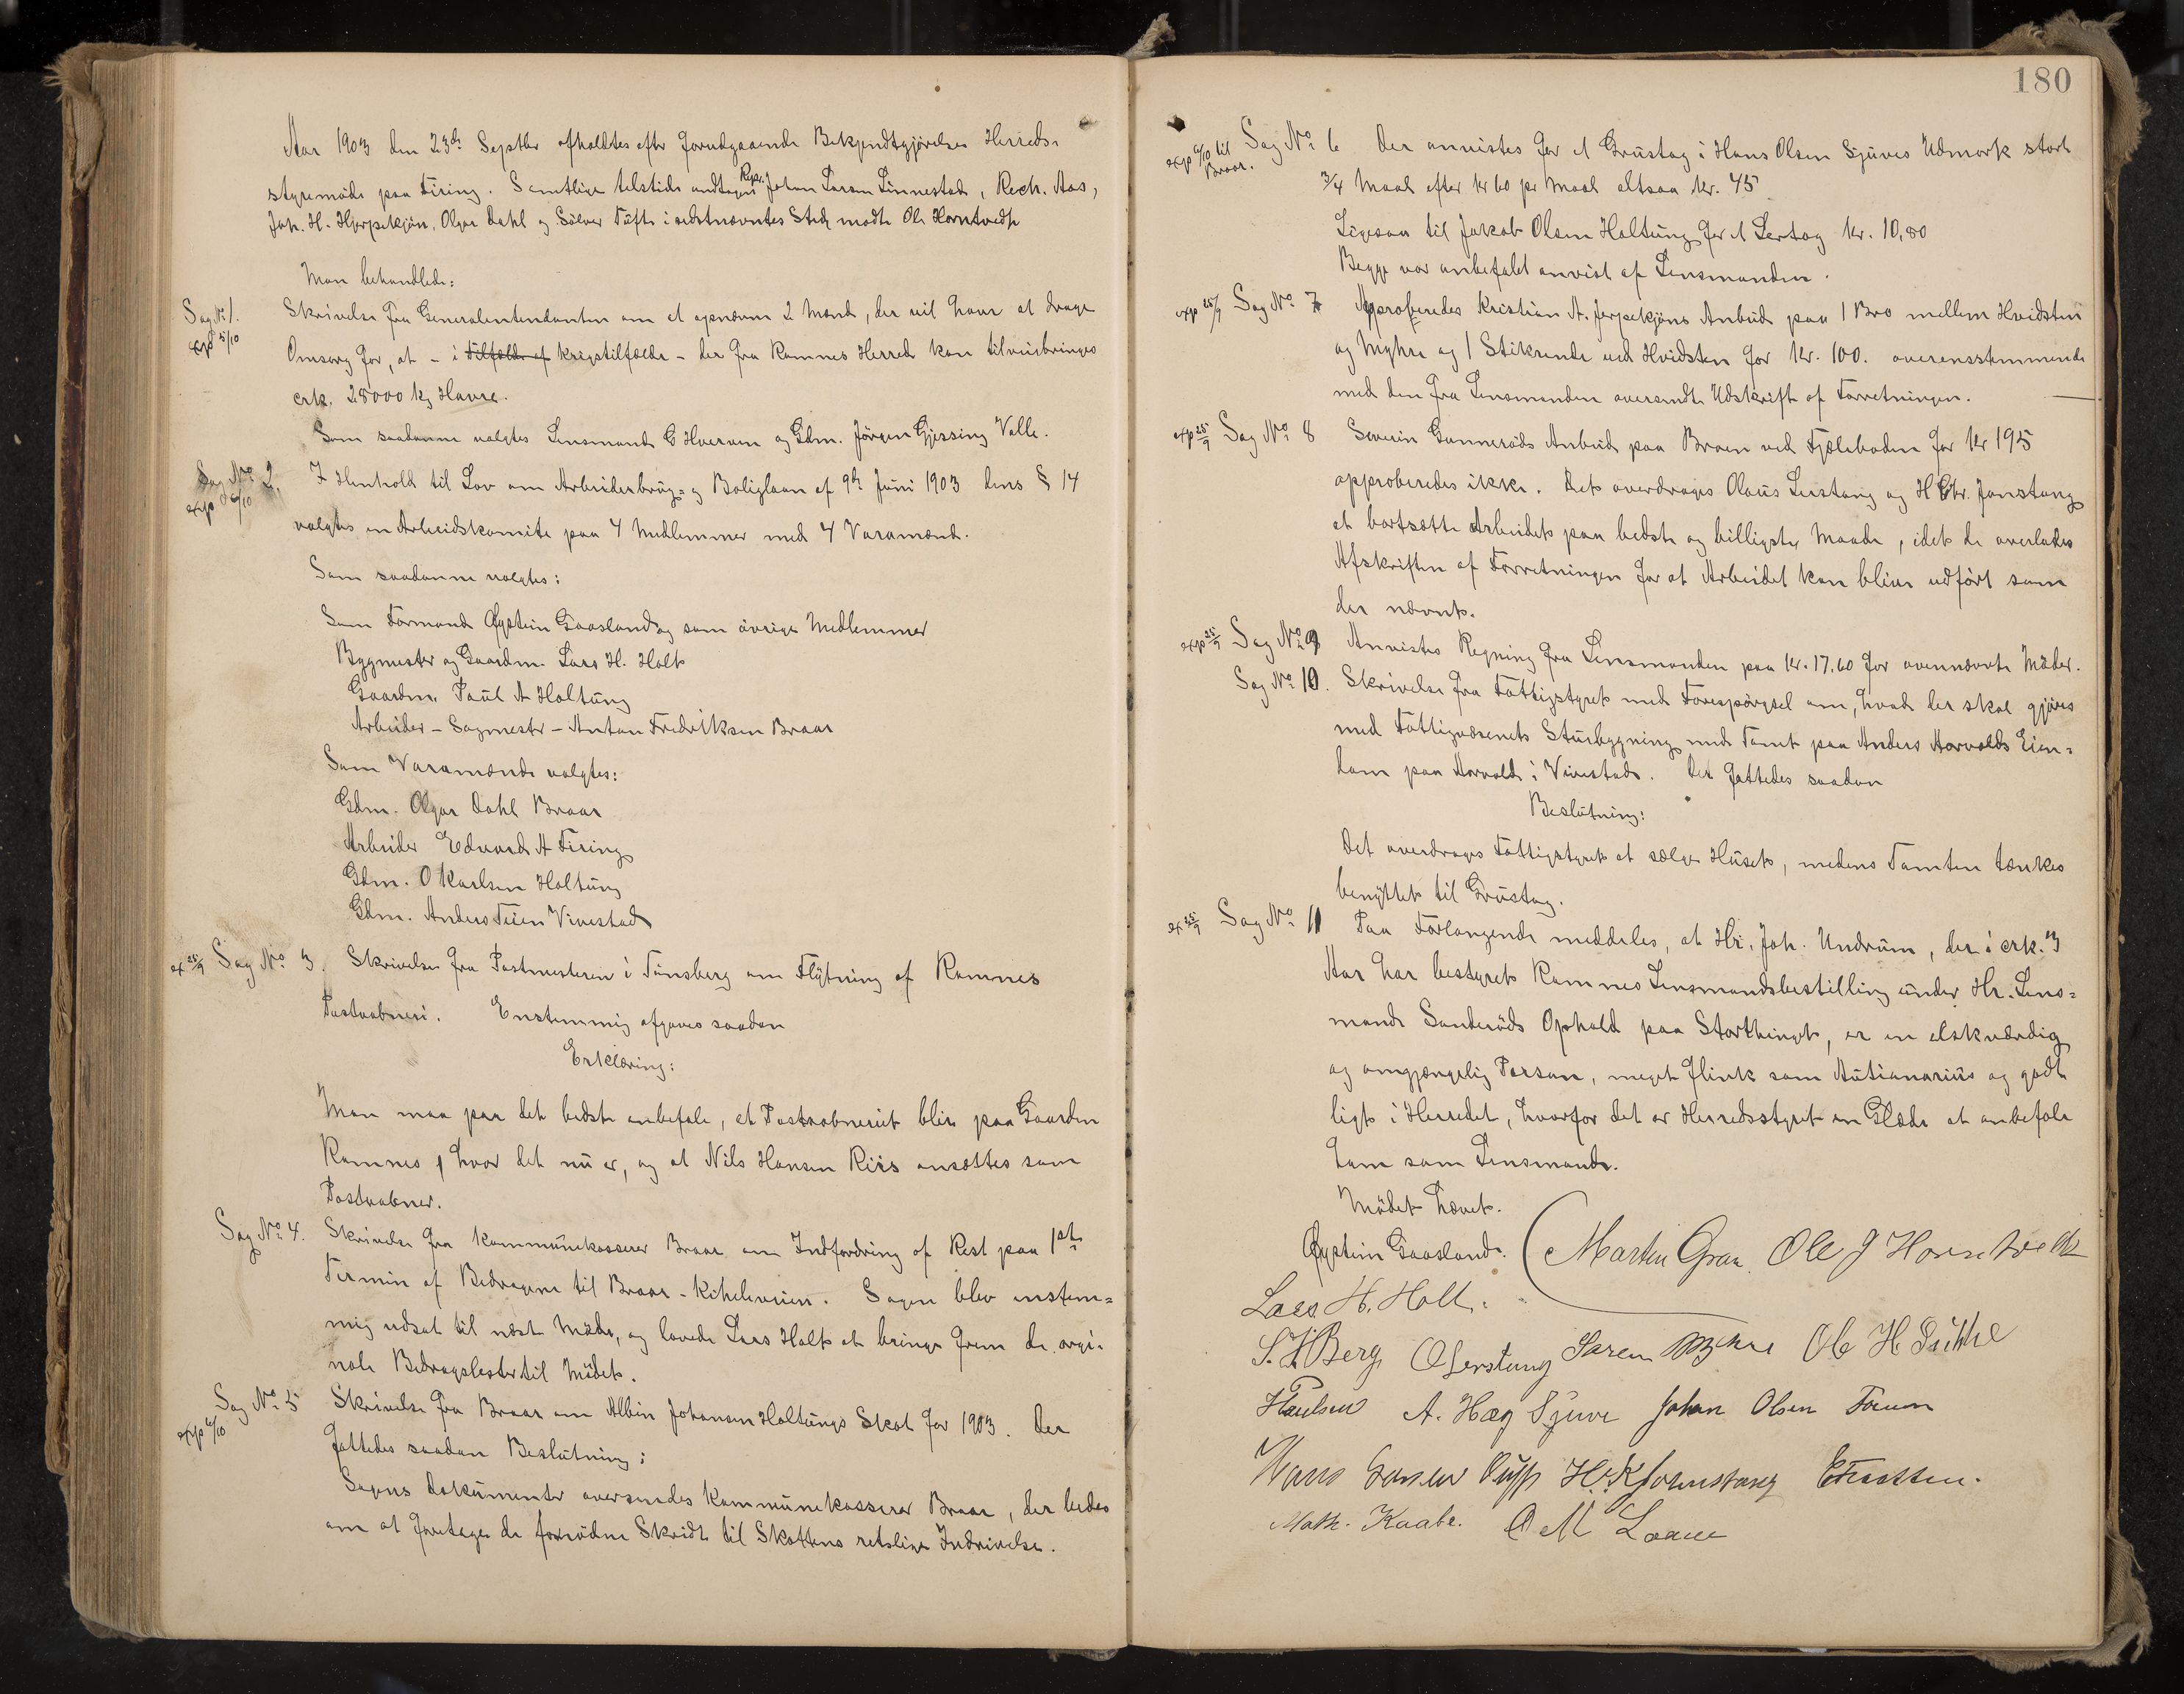 Aar 1903 den 23de Septbr afholdtes efter forudgaaende Bekjendtgjørelse Herreds-
styremøde paa Firing. Samtlige tilstede undtagen Repr. Johan Larsen Linnestad, Rech. Aas,
Joh. H. Hjerpekjøn, Olger Dahl og Sølver Tufte i sidstnævntes Sted mødte Ole Horntvedt
Man behandlede:
Sag No 1. Skrivelse fra Generalintendanten om at opnævne 2 Mænd, der vil have at drage
exp 5/10 Omsorg for, at - i Tilfælde af krigstilfælde - der fra Ramnes Herred kan tilveiebringes
crk. 25000 kg Havre.
Som saadanne valgtes Lensmand G Hvarven og Gdm. Jørgen Gjessing Valle.
Sag No 2, I Henhold til Lov om Arbeiderbrug- og Boliglaan af 9de Juni 1903 dens § 14
exp 6/10 valgtes en Arbeidskomite paa 4 Medlemmer med 4 Varamænd.
Som saadanne valgtes:
Som Formand Øystein Gaasland og som øvrige Medlemmer
Bygmester og Gaardm. Lars H. Holt
Gaardm. Paul A Holtung
Arbeider - Sagmester - Anton Fredriksen Braar
Som Varamænd valgtes:
Gdm. Olgar Dahl Braar
Arbeider Edvard A Firing
Gdm. O Karlsen Holtung
Gdm. Anders Teien Vivestad
ex 25/9 Sag No 3. Skrivelse fra Postmesteren i Tünsberg om Flytning af Ramnes
Postaabneri. Enstemmig afgaves saadan
Erklæring:
Man maa paa det bedste anbefale, at Postaabneriet blir paa Gaarden
Ramnes, hvor det nu er, og at Nils Hansen Riis ansættes som
Postaabner.
Sag No 4. Skrivelse fra Kommunekasserer Braar om Indfordring af Rest paa 1ste
Termin af Bidragene til Braar - Kihleveien. Sagen blev enstem-
mig udsat til næste Møde, og lovede Lars Holt at bringe frem de orgi-
nale Bidragslister til Mødet.
Sag No 5 Skrivelse fra Braar om Albin Johansen Holtungs Skat for 1903. Der
exp 6/10 fattedes saadan Beslutning:
Sagens Dokumenter oversendes Kommunekasserer Braar, der bedes
om at foretage de fornødne Skridt til Skattens retslige Inddrivelse.
180
exp 6/10 til Braar. Sag No 6 Der anvistes for et Grustag i Hans Olsen Sjuves Udmark stort
3/4 Maal efter kr 60 pr Maal altsaa kr. 45
Ligesaa til Jakob Olsen Holtung for et Lertag kr. 10,80
Begge var anbefalet anvist af Lensmanden.
exp 25/9 Sag No 7 Approberedes Kristian A. Jerpekjøns Anbud paa 1 Bro mellem Hvidsten
og Myhre og 1 Stikrende ved Hvidsten for kr. 100. overensstemmende
med den fra Lensmanden oversendte Udskrift af Forretningen.
exp 25/9 Sag No 8 Severin Gunnerøds Anbud paa Broen ved Fjæleboden for kr 195
approberedes ikke. Det overdrages Olaus Lerstang og H Chr. Jonstang
at bortsætte Arbeidet paa bedste og billigste Maade, idet de overlades
Afskriften af Forretningen for at Arbeidet kan blive udført som
der nævnt.
exp 25/9 Sag No 9 Anvistes Regning fra Lensmanden paa kr. 17.60 for ovennævnte Møder.
Sag No 10. Skrivelse fra Fattigstyret med Forespørgsel om, hvad der skal gjøres
med Fattigvæsenets Stuebygning med Tomt paa Anders Aarvolds Eien-
dom paa Aarvold i Vivestad. Der fattedes saadan
Beslutning:
Det overdrages Fattigstyret at sælge Huset, medens Tomten tænkes
benyttet til Grustag.
ex 25/9 Sag No 11 Paa Forlangende meddeles, at Hr. Joh. Undrum, der i crk. 3
Aar har bestyret Ramnes Lensmandsbestilling under Hr. Lens-
mand Sanderøds Ophold paa Storthinget, er en elskværdig
og omgjængelig Person, meget flink som Autionarius og godt
ligt i Herredet, hvorfor det er Herredsstyret en Glæde at anbefale
ham som Lensmand.
Mødet hævet.
Øystein Gaasland. Martin Gran. Ole J Horntvedt
Lars H. Holt.
S. J. Berg O Lerstang Søren Myhre Ole H
HPaulsen A. Hæg Sjuve Johan Olsen
Hans H. K. Jonstang
Math. Kaabe. O M